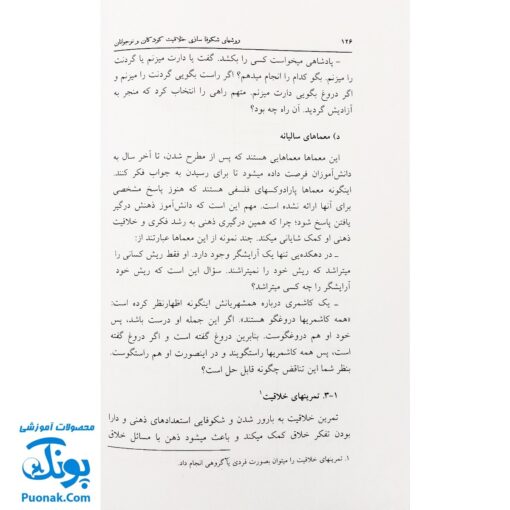 ۱۲۶ روشهای شکوفا سازی خلاقیت کودکان و نوجوانان
– پادشاهی میخواست کسی را بکشد. گفت یا دارت میزنم یا گردنت
را میزنم. بگو کدام را انجام میدهم؟ اگر راست بگویی گردنت را میزنم و
اگر دروغ بگویی دارت میزنم. متهم راهی را انتخاب کرد که منجر به
آزادیش گردید. آن راه چه بود؟
د) معماهای سالیانه
این معماها معماهایی هستند که پس از مطرح شدن، تا آخر سال به
دانش‌آموزان فرصت داده میشود تا برای رسیدن به جواب فکر کنند.
اینگونه معماها پارادوکسهای فلسفی هستند که هنوز پاسخ مشخصی
برای آنها ارائه نشده است. مهم این است که دانش‌آموز ذهنش درگیر
یافتن پاسخ شود؛ چرا که همین درگیری ذهنی به رشد فکری و خلاقیت
ذهنی او کمک شایانی میکند. چند نمونه از این معماها عبارتند از:
– در دهکده‌یی تنها یک آرایشگر وجود دارد. او فقط ریش کسانی را
میتراشد که ریش خود را نمیتراشند. سؤال این است که ریش خود
آرایشگر را چه کسی میتراشد؟
– یک کاشمری درباره همشهریانش اینگونه اظهارنظر کرده است:
«همه کاشمریها دروغگو هستند». اگر این جمله او درست باشد، پس
خود او هم دروغگوست. بنابرین دروغ گفته است و اگر دروغ گفته
است، پس همه کاشمریها راستگویند و در اینصورت او هم راستگوست.
بنظر شما این تناقض چگونه قابل حل است؟
۳-۱. تمرینهای خلاقیت۱
تمرین خلاقیت به بارور شدن و شکوفایی استعدادهای ذهنی و دارا
بودن تفکر خلاق کمک میکند و باعث میشود ذهن با مسائل خلاق
۱. تمرینهای خلاقیت را میتوان بصورت فردی یا گروهی انجام داد.
محصولات آموزشی
پونک
Puonak.Com